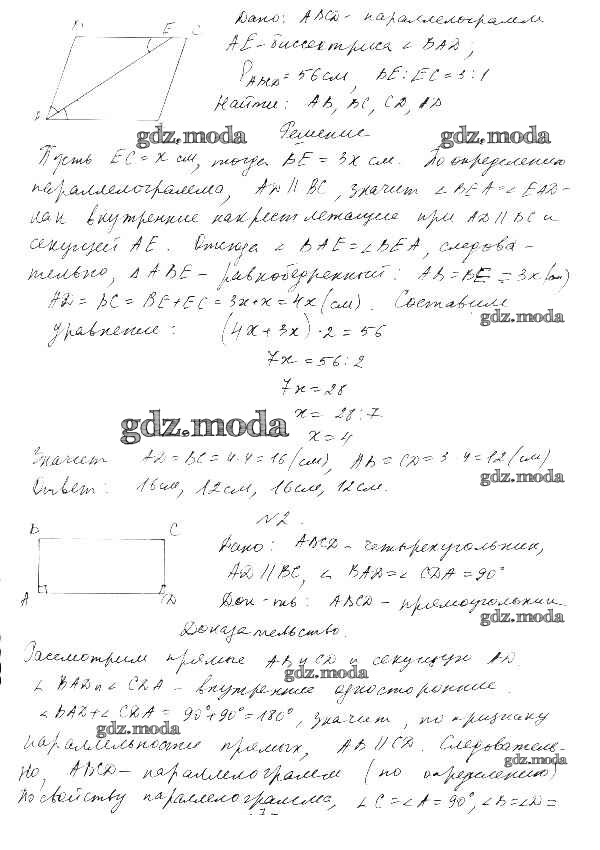 B E C
Дано: ABCD - параллелограмм
AE - биссектриса ∠ BAD,
P ABCD = 56 см, BE : EC = 3 : 1
Найти: AB, BC, CD, AD
gdz.moda gdz.moda
Решение
Пусть EC = x см, тогда BE = 3x см. По определению
параллелограмма, AD || BC, значит ∠ BEA = ∠ EAD -
как внутренние накрест лежащие при AD || BC и
секущей AE. Отсюда ∠ BAE = ∠ BEA, следова-
тельно, Δ ABE - равнобедренный: AB = BE = 3x (см)
AD = BC = BE + EC = 3x + x = 4x (см). Составим
gdz.moda
уравнение: (4x + 3x) · 2 = 56
7x = 56 : 2
7x = 28
gdz.moda
x = 28 : 7
x = 4
Значит AD = BC = 4 · 4 = 16 (см), AB = CD = 3 · 4 = 12 (см)
gdz.moda
Ответ: 16 см, 12 см, 16 см, 12 см.
N2.
B C
Дано: ABCD - четырехугольник,
AD || BC, ∠ BAD = ∠ CDA = 90°
A D
Док-ть: ABCD - прямоугольник
gdz.moda
Доказательство.
Рассмотрим прямые AB и CD и секущую AD.
gdz.moda
∠ BAD и ∠ CDA - внутренние односторонние.
∠ BAD + ∠ CDA = 90° + 90° = 180°, значит, по признаку
gdz.moda
параллельности прямых, AB || CD. Следователь-
gdz.moda
но, ABCD - параллелограмм (по определению)
По свойству параллелограмма, ∠ C = ∠ A = 90°, ∠ B = ∠ D =
gdz.moda